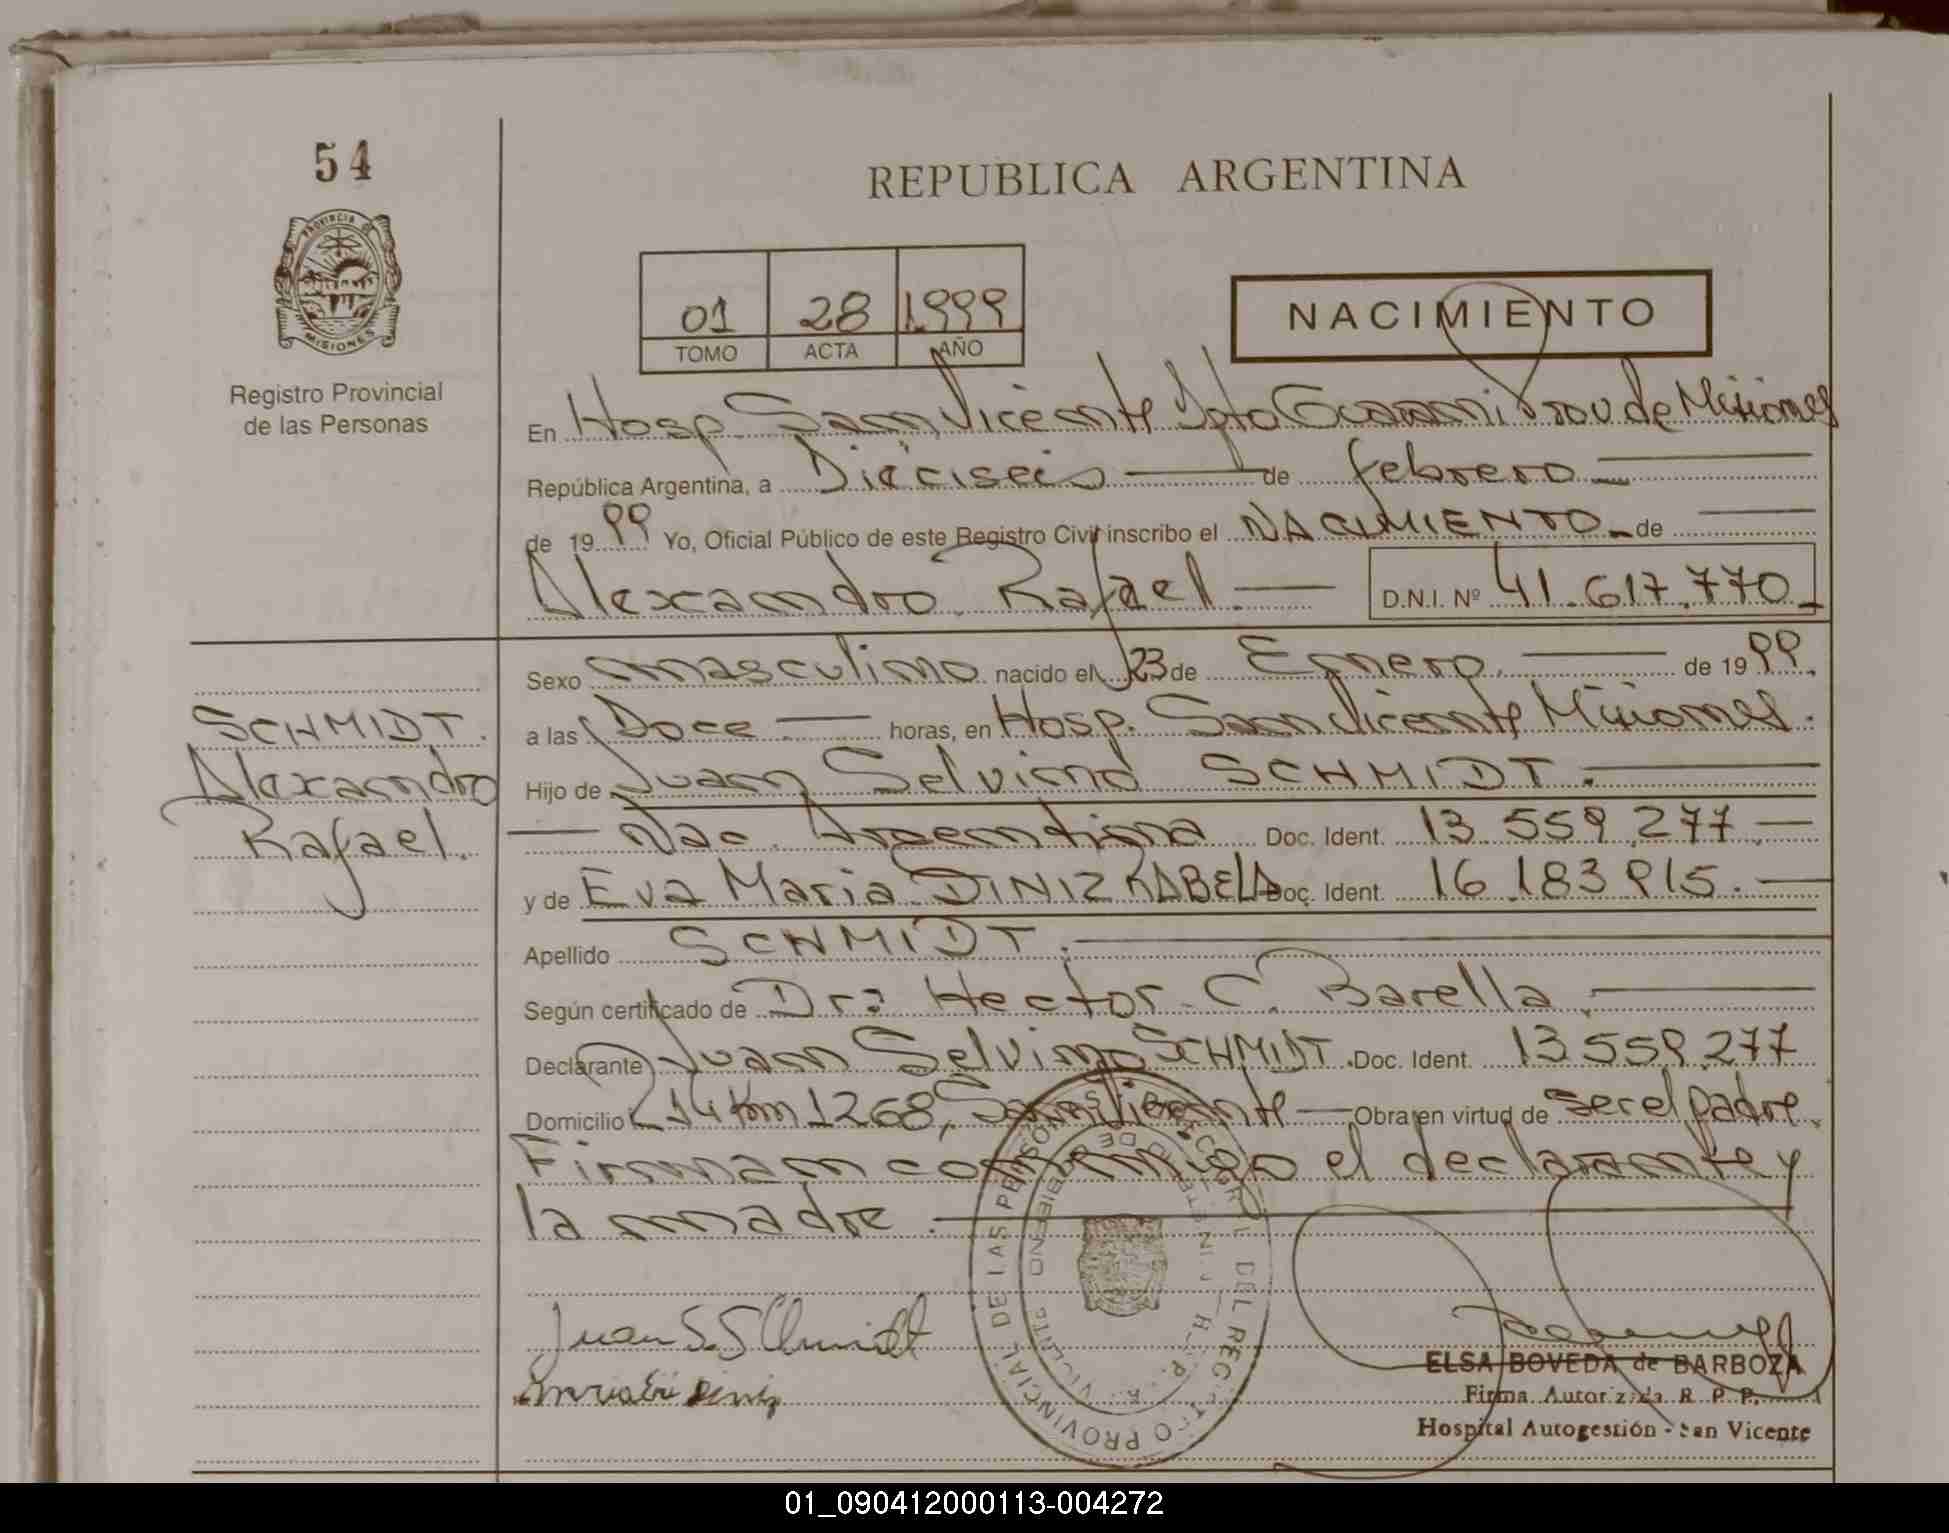 54
PROVINCIA DE
MISIONES
Registro Provincial
de las Personas
REPUBLICA ARGENTINA
01 28 1999
TOMO ACTA AÑO
NACIMIENTO
En Hosp San Vicente Dpto Guarani Prov de Misiones
República Argentina, a Dieciseis de febrero
de 1999 Yo, Oficial Público de este Registro Civil inscribo el NACIMIENTO de
Alexandro Rafael. D.N.I. Nº 41.617.770
Sexo masculino nacido el 23 de Enero. de 1999.
a las Doce horas, en Hosp. San Vicente Misiones.
Hijo de Juan Selvino SCHMIDT.
Nac. Argentina Doc. Ident. 13.559.277
y de Eva Maria DINIZ RABELA Doc. Ident. 16.183.915.
Apellido SCHMIDT.
Según certificado de Dr: Hector C. Barella
Declarante Juan Selvino SCHMIDT. Doc. Ident. 13.559.277
Domicilio 14 Km 1268, San Vicente Obra en virtud de ser el padre.
Firman conmigo el declarante y
la madre.
SCHMIDT.
Alexandro
Rafael.
Juan S. Schmidt
REGISTRO PROVINCIAL DE LAS PERSONAS
ELSA BOVEDA de BARBOZA
Firma Autorizada R. P. P.
Hospital Autogestión - San Vicente
01_090412000113-004272